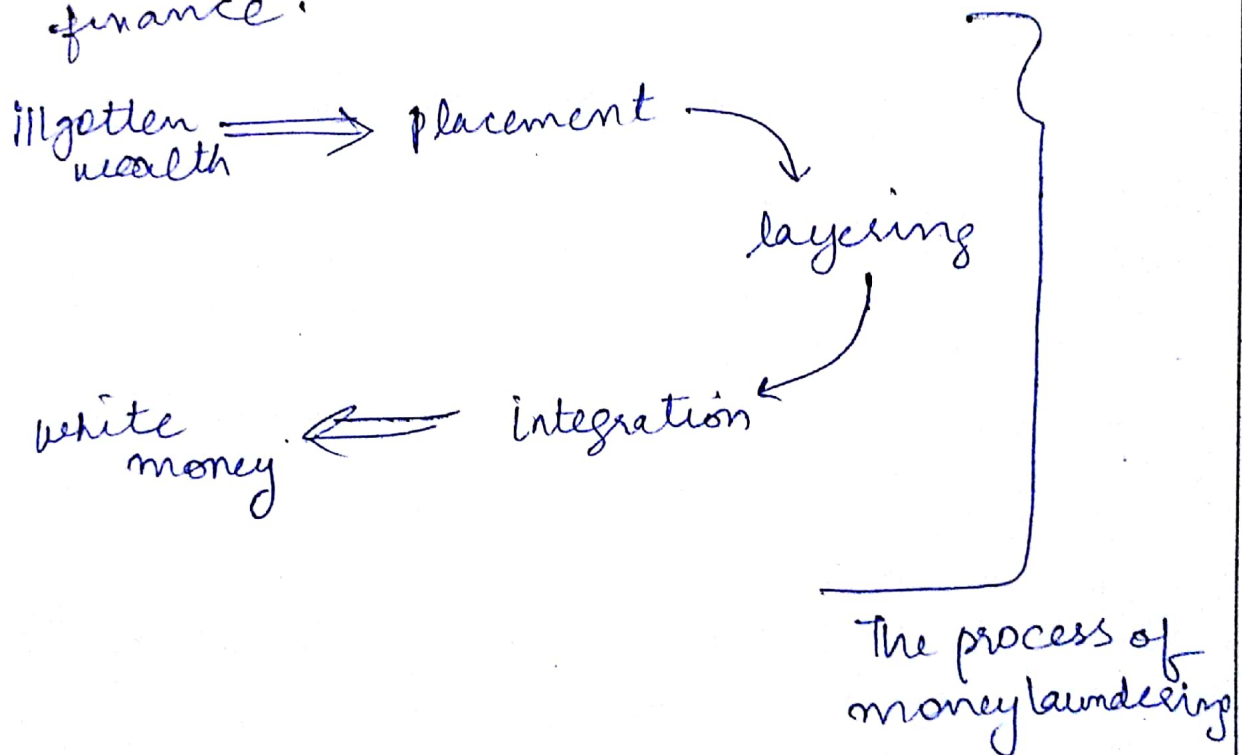 finance.
illgotten
wealth
placement
layering
integration
white
money
The process of
money laundering